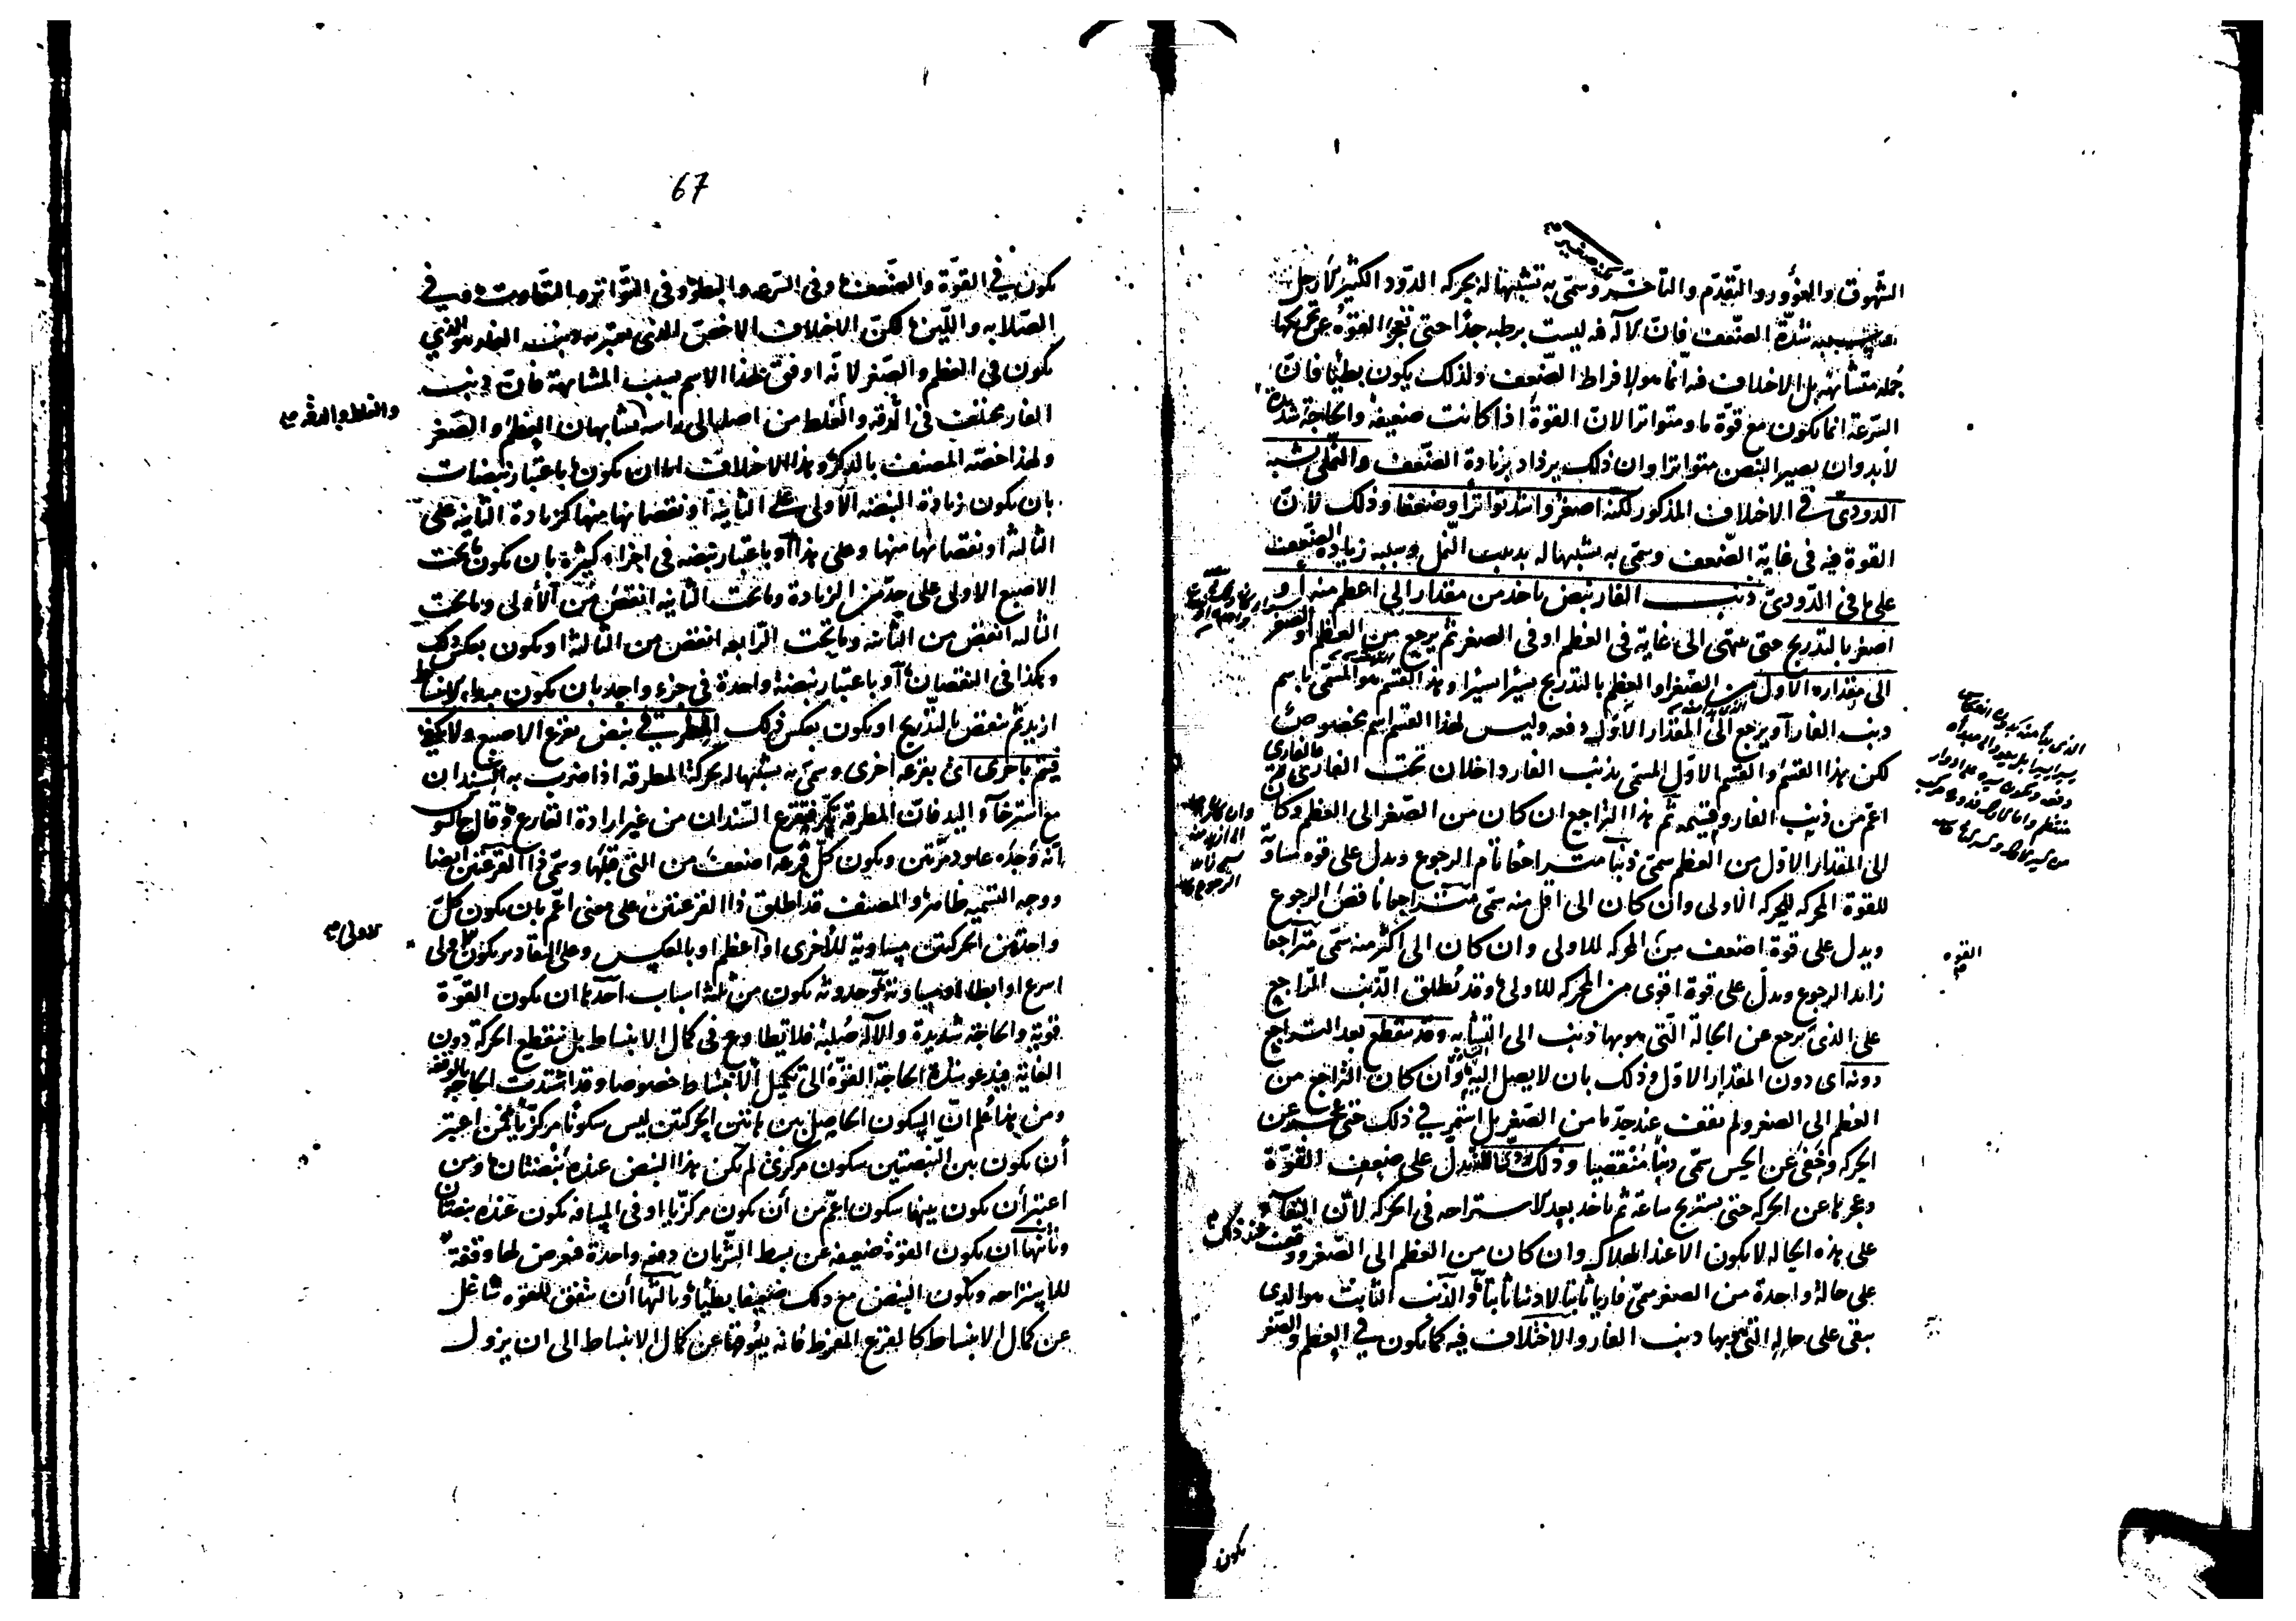 الشهوق والغؤور والتقدم والتأخر وسمّى به تشبيها له بحركة الدود الكثير الارجل
وسببه شدّة الضعف فانّ الآلة فيه ليست برطبة جدّا حتى تعجز القوّة عن تحريكها
جملة متشابهة بل الاختلاف فيه انّما هو لافراط الضّعف ولذلك يكون بطيئا فانّ
السّرعة انما يكون مع قوّة ما ومتواترا لانّ القوّة اذا كانت ضعيفة والحاجة شديدة
لابد وان يصير النبض متواترا وان ذلك يزداد بزيادة الضّعف والنّملى يشبه
الدودىّ في الاختلاف المذكور لكنّه اصغر واشدّ تواترا وضعفا وذلك لانّ
القوة فيه في غاية الضّعف وسمّى به تشبيها له بدبيب النّمل وسببه زيادة الضعف
على ما في الدّودىّ ذنب الفار نبض ياخذ من مقدار الى اعظم منه او
اصغر بالتدريج حتى ينتهى الى غاية في العظم او في الصغر ثم يرجع من العظم او الصغر
الى مقداره الاول من الصّغر او العظم بالتدريج يسيرا يسيرا وهذا القسم هو المسمّى باسم
ذنب الفار او يرجع الى المقدار الاوّل دفعة وليس لهذا القسم اسم مخصوص
لكن هذا القسم والقسم الاوّل المسمّى بذنب الفار داخلان تحت الفارى فالفارى
اعمّ من ذنب الفار وقسيمه ثمّ هذا التراجع ان كان من الصّغر الى العظم وكان
الى المقدار الاوّل من العظم سمّى ذنبا متراجعا تام الرجوع ويدل على قوة مساوية
للقوة المحركة للحركة الاولى وان كان الى اقل منه سمّى متراجعا ناقص الرجوع
ويدل على قوة اضعف من المحركة للاولى وان كان الى اكثر منه سمّى متراجعا
زايد الرجوع ويدلّ على قوة اقوى من المحركة للاولى وقد يُطلق الذّنب الرّاجع
على الذى يرجع عن الحالة الّتى هو بها ذنب الى التشابه وقد ينقطع بعد التراجع
دونه اى دون المقدار الاوّل وذلك بان لا يصل اليه وان كان التراجع من
العظم الى الصغر ولم يقف عند حدّ ما من الصّغر بل استمر في ذلك حتى عجز عن
الحركة وخفى عن الحس سمّى ذنبا منقضيا وذلك يدلّ على ضعف القوّة
وعجزها عن الحركة حتى تستريح ساعة ثم ياخذ بعد الاستراحة في الحركة لانّ
على هذه الحالة لا يكون الا عند الهلاك وان كان من العظم الى الصّغر ووقف عند ذلك
على حالة واحدة من الصغر سمّى فاريا ثابتا لا ذنبا ثابتا والذنب الثابت هو الذى
يبقى على حاله التى هو بها ذنب الفار والاختلاف فيه كما يكون في العظم والصّغر
القوة
يكون
67
يكون في القوّة والضّعف وفى السّرعة والبطؤ وفى التّواتر والتّفاوت وفي
الصّلابة واللّين لكنّ الاختلاف الاخصّ الذى يعتبر به ذنب الفار هو الذي
يكون في العظم والصّغر لانّه اوفق لهذا الاسم بسبب المشابهة فانّ ذنب
الفار مختلف في الدّقة والغلظ من اصله الى راسه يشابهان العظم والصّغر
والغلظ والدقة
ولهذا خصّه المصنف بالذكر وهذا الاختلاف اما ان يكون باعتبار نبضات
بان يكون زيادة النبضة الاولى على الثانية او نقصانها منها كزيادة الثانية على
الثالثة او نقصانها منها وعلى هذا او باعتبار نبضة في اجزاء كثيرة بان يكون ما تحت
الاصبع الاولى على حدّ من الزيادة وما تحت الثانية انقص من الأولى وما تحت
الثالثة انقص من الثانية وما تحت الرّابعة انقص من الثالثة او يكون بعكس ذلك
وهكذا في النقصان او باعتبار نبضة واحدة في جزء واحد بان يكون مبدا الانبساط
ازيد ثم ينقص بالتّدريج او يكون بعكس ذلك المطرقى نبض يقرع الاصبع ولا يكفى
فيتم باخرى اى بقرعة اخرى وسمّى به تشبيها له بحركة المطرقة اذا ضرب به السندان
مع استرخآء اليد فانّ المطرقة تكرّ فتقرع السّندان من غير ارادة القارع وقال جالينوس
انّه وجده عاود مرّتين ويكون كلّ قرعة اضعف من التى قبلها وسمّى ذا القرعتين ايضا
ووجه التسمية ظاهر والمصنف قد اطلق ذا القرعتين على معنى اعمّ بان يكون كلّ
واحدة من الحركتين مساوية للأخرى او اعظم او بالعكس وعلى التقادير يكون الاولى
لاولى
اسرع او ابطا او مساوية وحدوثه يكون من ثلثة اسباب احدها ان يكون القوّة
قوية والحاجة شديدة والآلة صُلبة فلا يطاوع في كمال الانبساط بل ينقطع الحركة دون
الغاية فيدعو شدّة الحاجة القوّة الى تكميل الانبساط خصوصا وقد اشتدت الحاجة بالوقفة
ومن هذا عُلم انّ السكون الحاصل بين هاتين الحركتين ليس سكونا مركزيّا فمن اعتبر
أن يكون بين النّبضتين سكون مركزى لم يكن هذا النبض عنده نبضتان ومن
اعتبر أن يكون بينهما سكون اعمّ من أن يكون مركزيّا او في المسافة يكون عنده نبضتان
وثانيها ان يكون القوّة ضعيفة عن بسط الشّريان دفعة واحدة فيعرض لها وقفة
للاستراحة ويكون النبض مع ذلك ضعيفا بطيئا وثالثها أن يتفق للقوّة شاغل
عن كمال الانبساط كالفزع المفرط فانه يعوقها عن كمال الانبساط الى ان يزول